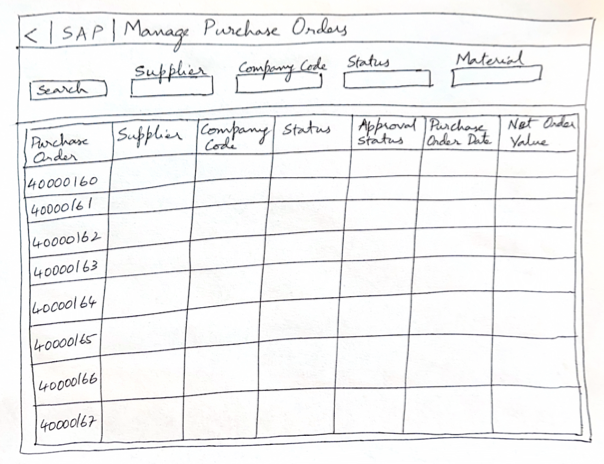 < | SAP | Manage Purchase Orders
Search
Supplier
Company Code
Status
Material
Purchase
Order
Supplier
Company
Code
Status
Approval
Status
Purchase
Order Date
Net Order
Value
40000160
40000161
40000162
40000163
40000164
40000165
40000166
40000167